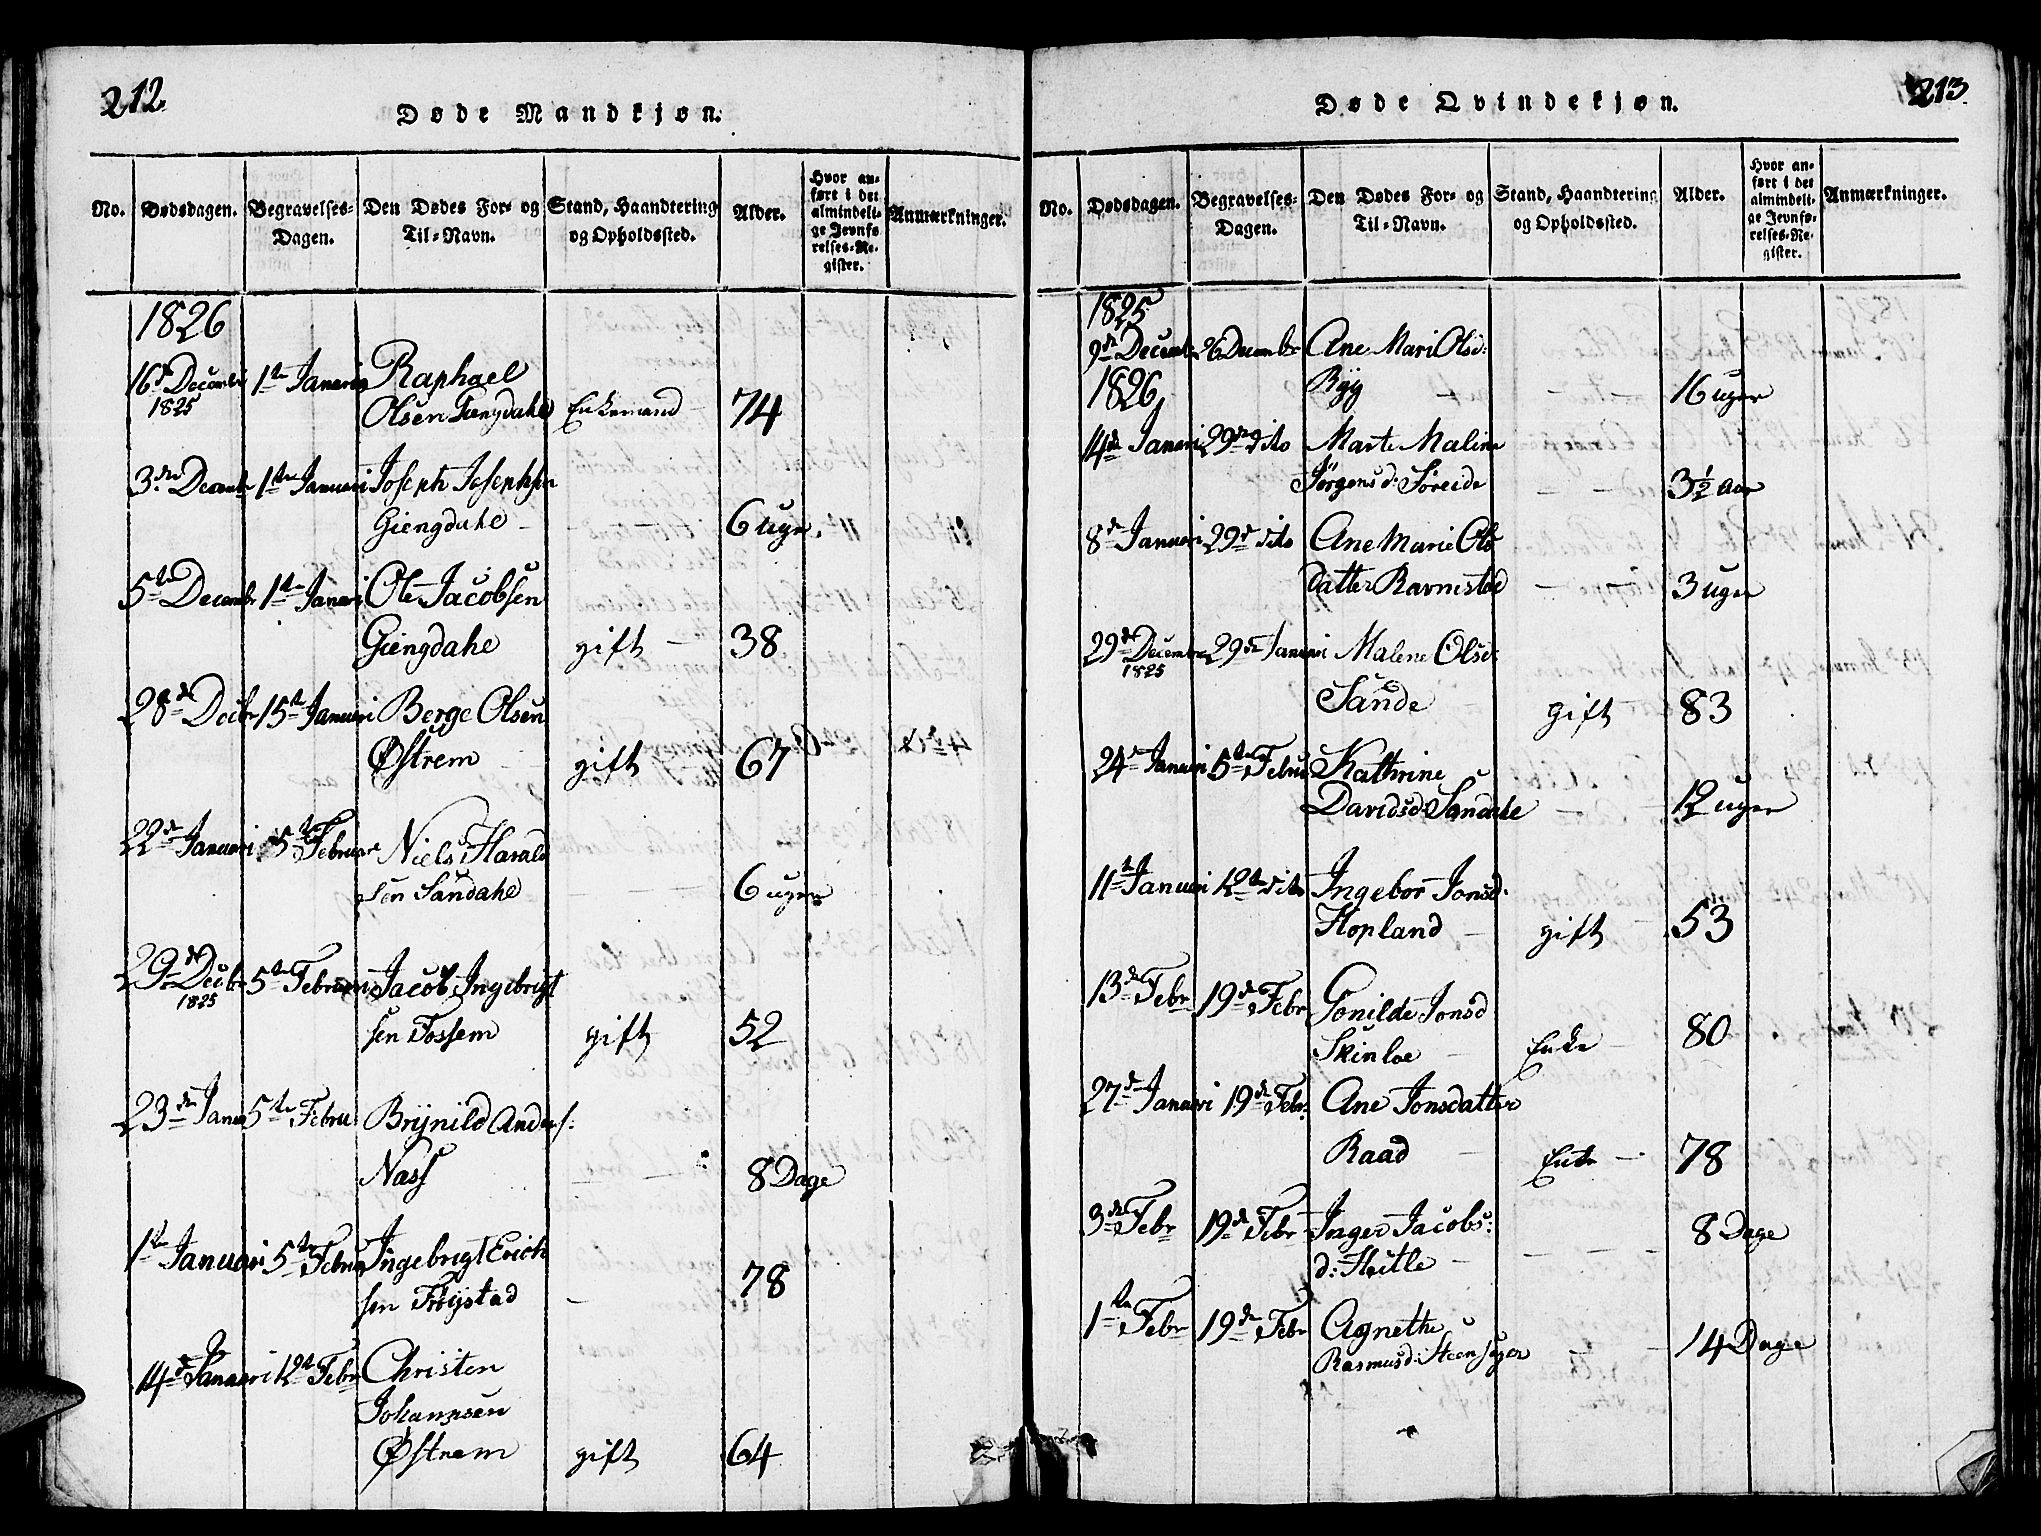 212.
Døde Mandkjøn.
No. Dødsdagen. Begravelses-Dagen. Den Dødes For- og Til-Navn. Stand, Haandtering og Opholdssted. Alder. Hvor anført i det almindelige Jevnførelses-Register. Anmærkninger.
1826
16d Decembr 1te Januari Raphael
1825 Olsen Giengdahl Enkemand 74
3die Decembr 1te Januari Joseph Josephsen
Giengdahl - 6 uger.
5te Decembr 1te Januari Ole Jacobsen
Giengdahl gift - 38
28de Decbr 15te Januari Berge Olsen
Østrem gift 67
22de Januari 5te Februar Niels Harald
sen Sandahl 6 uger
29de Decbr 5te Februari Jacob Ingebrigt
1825
sen Fossem gift 52
23de Janua 5te Febru: Brÿnild Anders:
Næss 8 Dage
1te Januari 5te Februa Ingebrigt Erich
sen Frøÿstad - 78
14de Januari 12te Febr Christen
Johannesen
Østrem gift 64
213.
Døde Qvindekjøn.
No. Dødsdagen. Begravelses-Dagen. Den Dødes For- og Til-Navn. Stand, Haandtering og Opholdssted. Alder. Hvor anført i det almindelige Jevnførelses-Register. Anmærkninger.
1825
9de Decembr 26 Decembr Ane Mari Olsd:
1826 Rÿg - - 16 uger
14de Januari 29de dito Marte Maline
Jørgensd: Søreide - - 3½ Aar
8de Januari 29de dito Ane Marie Ols
datter Ravnestad - - 3 uger
29de Decembr 29de Januari Malene Olsd:
1825
Sande gift - 83
24de Januari 5te Februa Kathrine
Davidsd: Sandahl - 12 uger
11te Januari 12te dito Ingebor Jonsd:
Hopland - gift - 53
13de Febr 19de Febr Gonilde Jonsd
Skinloe - Enke - 80
27de Januari 19de Febr: Ane Jonsdatter
Raad - Enke - 78
3de Febr 19de Febr Inger Jacobs:
d: Hetle - - - - 8 Dage
1te Febr 19de Febr Agnethe
Rasmusd: Steensøger - - 14 Dage